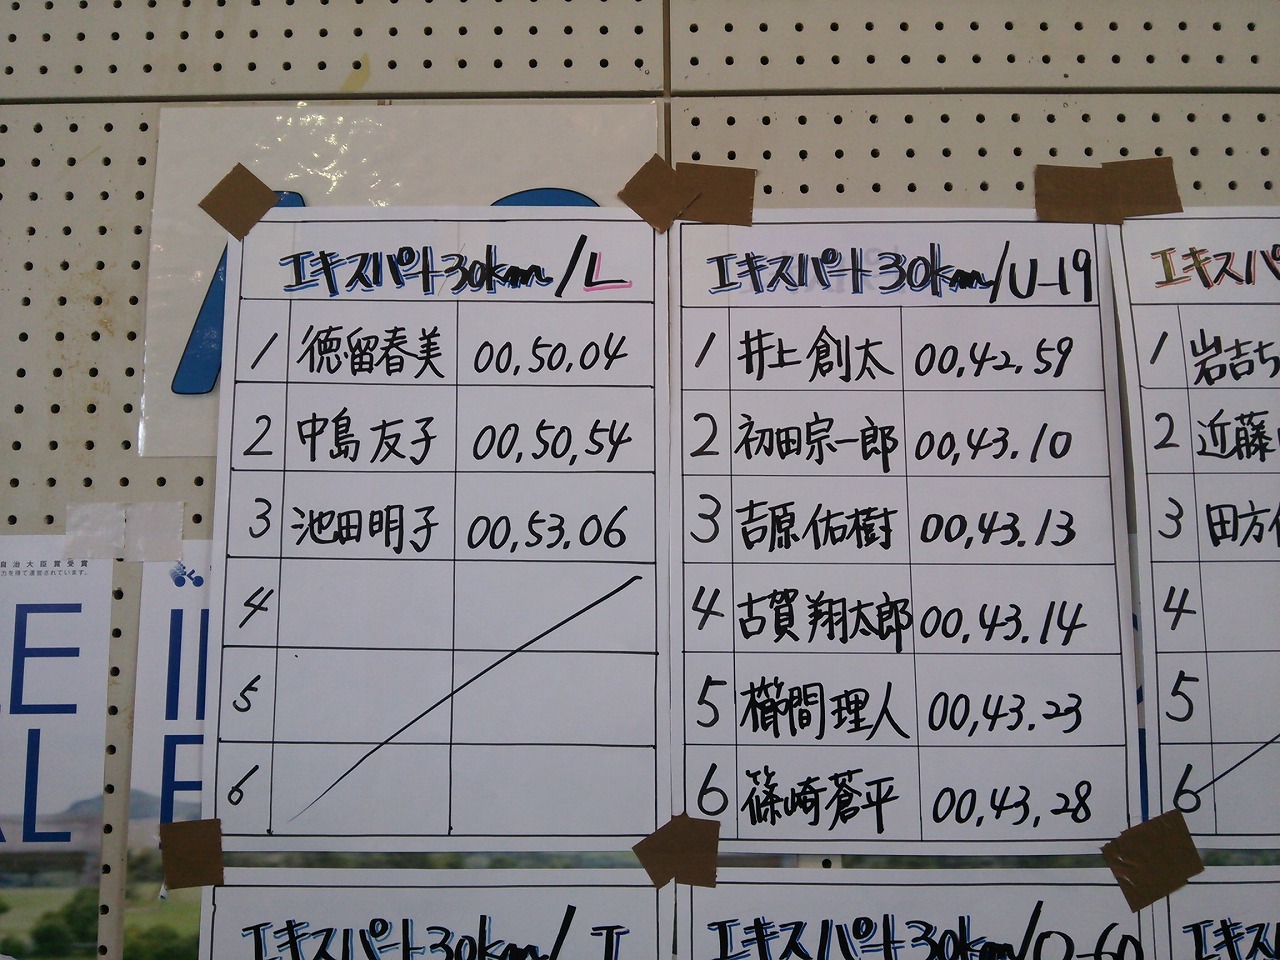 エキスパート30km/L
1 徳留春美 00,50,04
2 中島友子 00,50,54
3 池田明子 00,53.06
4
5
6
エキスパート30km/U-19
1 井上創太 00,42.59
2 初田宗一郎 00,43.10
3 吉原佑樹 00,43.13
4 古賀翔太郎 00,43.14
5 櫛間理人 00,43.23
6 篠崎蒼平 00,43,28
エキスパ
1 岩吉ち
2 近藤
3 田方
4
5
6
自治大臣賞受賞
力を得て運営されています。
エキスパート30km/
エキスパート30km/O-60
エキス